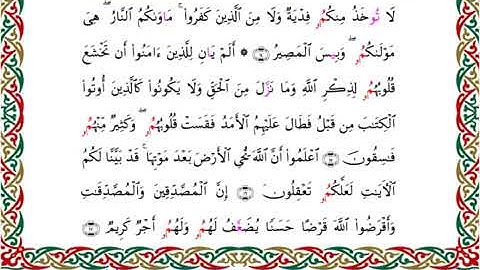 لَا تُوخَذُ مِنكُمُۥ فِدْيَةٌ وَلَا مِنَ الَّذِينَ كَفَرُوا۟ ۚ مَاوَىٰكُمُ النَّارُ ۖ هِىَ
مَوْلَىٰكُمُۥ ۖ وَبِيسَ الْمَصِيرُ ۞ أَلَمْ يَانِ لِلَّذِينَ ءَامَنُوا۟ أَن تَخْشَعَ
قُلُوبُهُمُۥ لِذِكْرِ اللَّهِ وَمَا نَزَّلَ مِنَ الْحَقِّ وَلَا يَكُونُوا۟ كَالَّذِينَ أُوتُوا۟
الْكِتَٰبَ مِن قَبْلُ فَطَالَ عَلَيْهِمُ الْأَمَدُ فَقَسَتْ قُلُوبُهُمُۥ ۖ وَكَثِيرٌ مِنْهُمُۥ
فَٰسِقُونَ اعْلَمُوا۟ أَنَّ اللَّهَ يُحْىِ الْأَرْضَ بَعْدَ مَوْتِهَا ۚ قَدْ بَيَّنَّا لَكُمُ
الْآيَٰتِ لَعَلَّكُمُۥ تَعْقِلُونَ إِنَّ الْمُصَّدِّقِينَ وَالْمُصَّدِّقَٰتِ
وَأَقْرَضُوا۟ اللَّهَ قَرْضًا حَسَنًا يُضَعَّفُ لَهُمُۥ وَلَهُمُۥ أَجْرٌ كَرِيمٌ